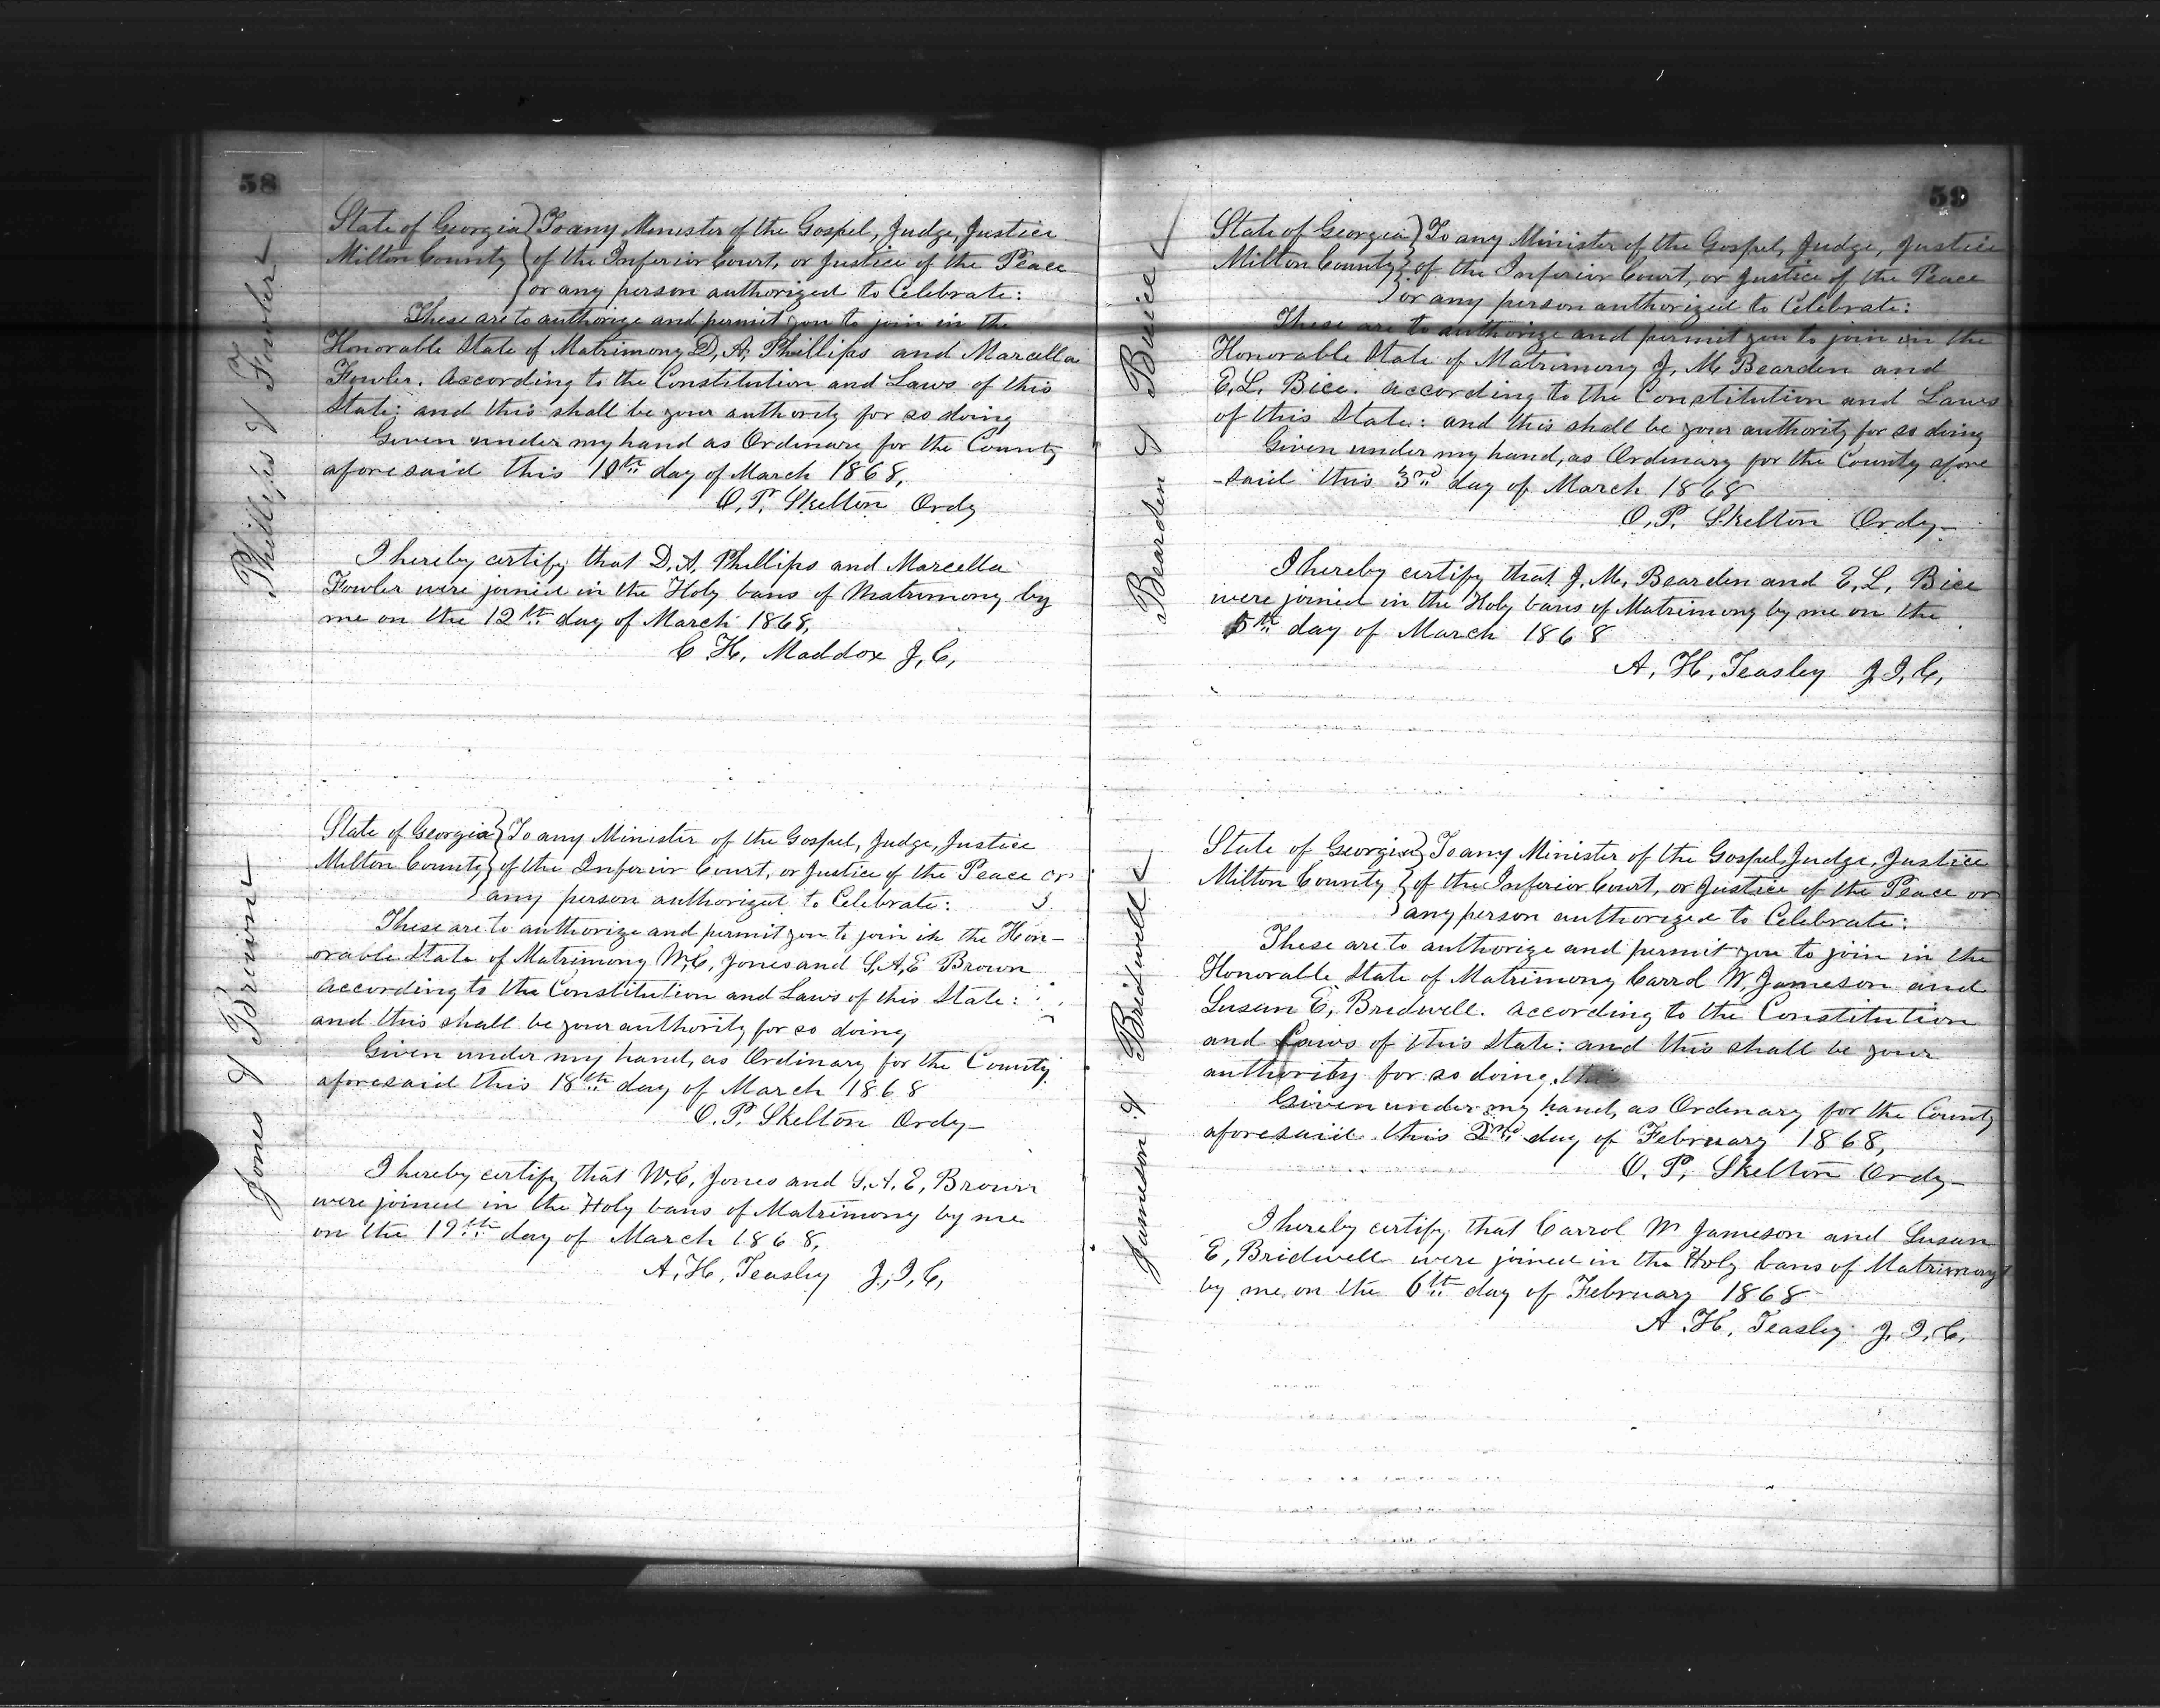 58
Phillips & Fowler
State of Georgia } To any Minester of the Gospel, Judge, Justice
Milton County } of the Inferior Court, or Justice of the Peace
} or any person authorized to Celebrate:
These are to authorize and permit you to join in the
Honorable State of Matrimony D, A, Phillips and Marcella
Fowler. According to the Constitution and Laws of this
State; and this shall be your authority for so doing
Given under my hand as Ordinary for the County
aforesaid this 10th day of March 1868,
O, P, Skelton Ordy
I hereby certify that D, A, Phillips and Marcella
Fowler were joined in the Holy bans of Matrimony by
me on the 12th day of March 1868,
C H, Maddox J, C,
Jones & Brown
State of Georgia } To any Minister of the Gospel, Judge, Justice
Milton County } of the Inferior Court, or Justice of the Peace or
} any person authorized to Celebrate:
These are to authorize and permit you to join in the Hon-
orable State of Matrimony W, C, Jones and S, A, E Brown
According to the Constitution and Laws of this State:
and this shall be your authority for so doing,
Given under my hand, as Ordinary for the County
aforesaid this 18th day of March 1868
O. P. Skelton Ordy-
I hereby certify that W. C, Jones and S. A. E, Brown
were joined in the Holy bans of Matrimony by me
on the 19th day of March 1868,
A, H, Teasley J, I, C,
59
Bearden & Buice
State of Georgia } To any Minister of the Gospel, Judge, Justice
Milton County } of the Inferior Court, or Justice of the Peace
} or any person authorized to Celebrate:
These are to authorize and permit you to join in the
Honorable State of Matrimony J, M Bearden and
E, L, Bice. according to the Constitution and Laws
of this State: and this shall be your authority for so doing
Given under my hand, as Ordinary for the County afore
-said this 3rd day of March 1868
O, P, Skelton Ordy-
I hereby certify that J, M, Bearden and E, L, Bice
were joined in the Holy bans of Matrimony by me on the
5th day of March 1868
A, H, Teasley J, I, C,
Jameson & Bridwell
State of Georgia } To any Minister of the Gospel, Judge, Justice
Milton County } of the Inferior Court, or Justice of the Peace or
} any person authorized to Celebrate:
These are to authorize and permit you to join in the
Honorable State of Matrimony Carrol W, Jameson and
Susan E, Bridwell. according to the Constitution
and Laws of this State: and this shall be your
authority for so doing,
Given under my hand, as Ordinary for the County
aforesaid this 2nd day of February 1868,
O. P, Skelton Ordy-
I hereby certify that Carrol W Jameson and Susan
E, Bridwell were joined in the Holy bans of Matrimony
by me on the 6th day of February 1868
A. H, Teasley J, I, C,